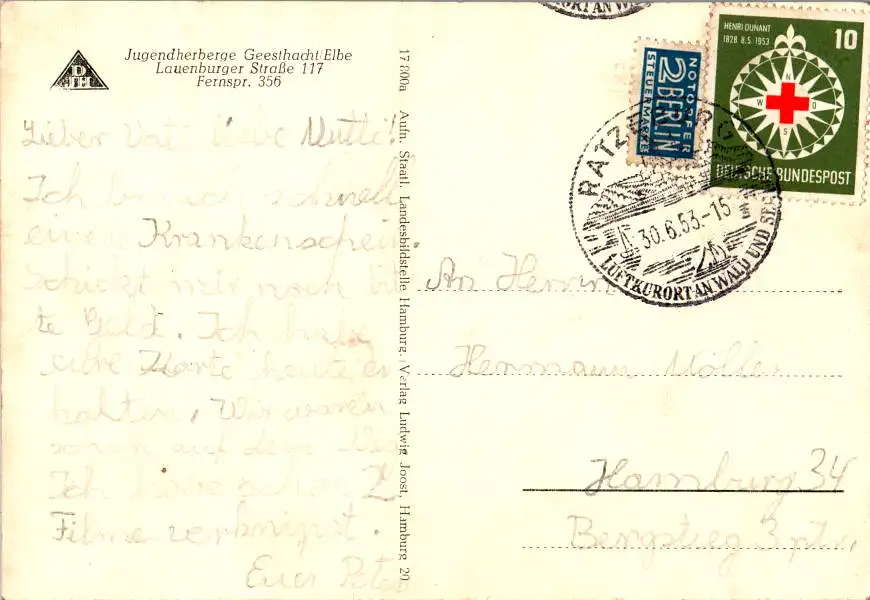 Jugendherberge Geesthacht/Elbe
Lauenburger Straße 117
Fernspr. 356
Lieber Vati liebe Mutti!
Ich brauch schnell
einen Krankenschein.
Schickt mir noch bit
te Geld. Ich habe
eure Karte heute er
halten. Wir waren
schon auf dem
Ich habe schon 2
Filme verknipst.
Euer Peter
17 800a Aufn. Staatl. Landesbildstelle Hamburg. Verlag Ludwig Joost, Hamburg 20
An Herrn
Hermann Möller
Hamburg 34
Bergstieg 3 ptr.
NOTOPFER
2 BERLIN
STEUERMARKE
HENRI DUNANT
1828 8.5.1953
10
N
W O
S
DEUTSCHE BUNDESPOST
RATZEBURG
30.6.53.-15
LUFTKURORT AN WALD UND SEE
LUFTKURORT AN WALD